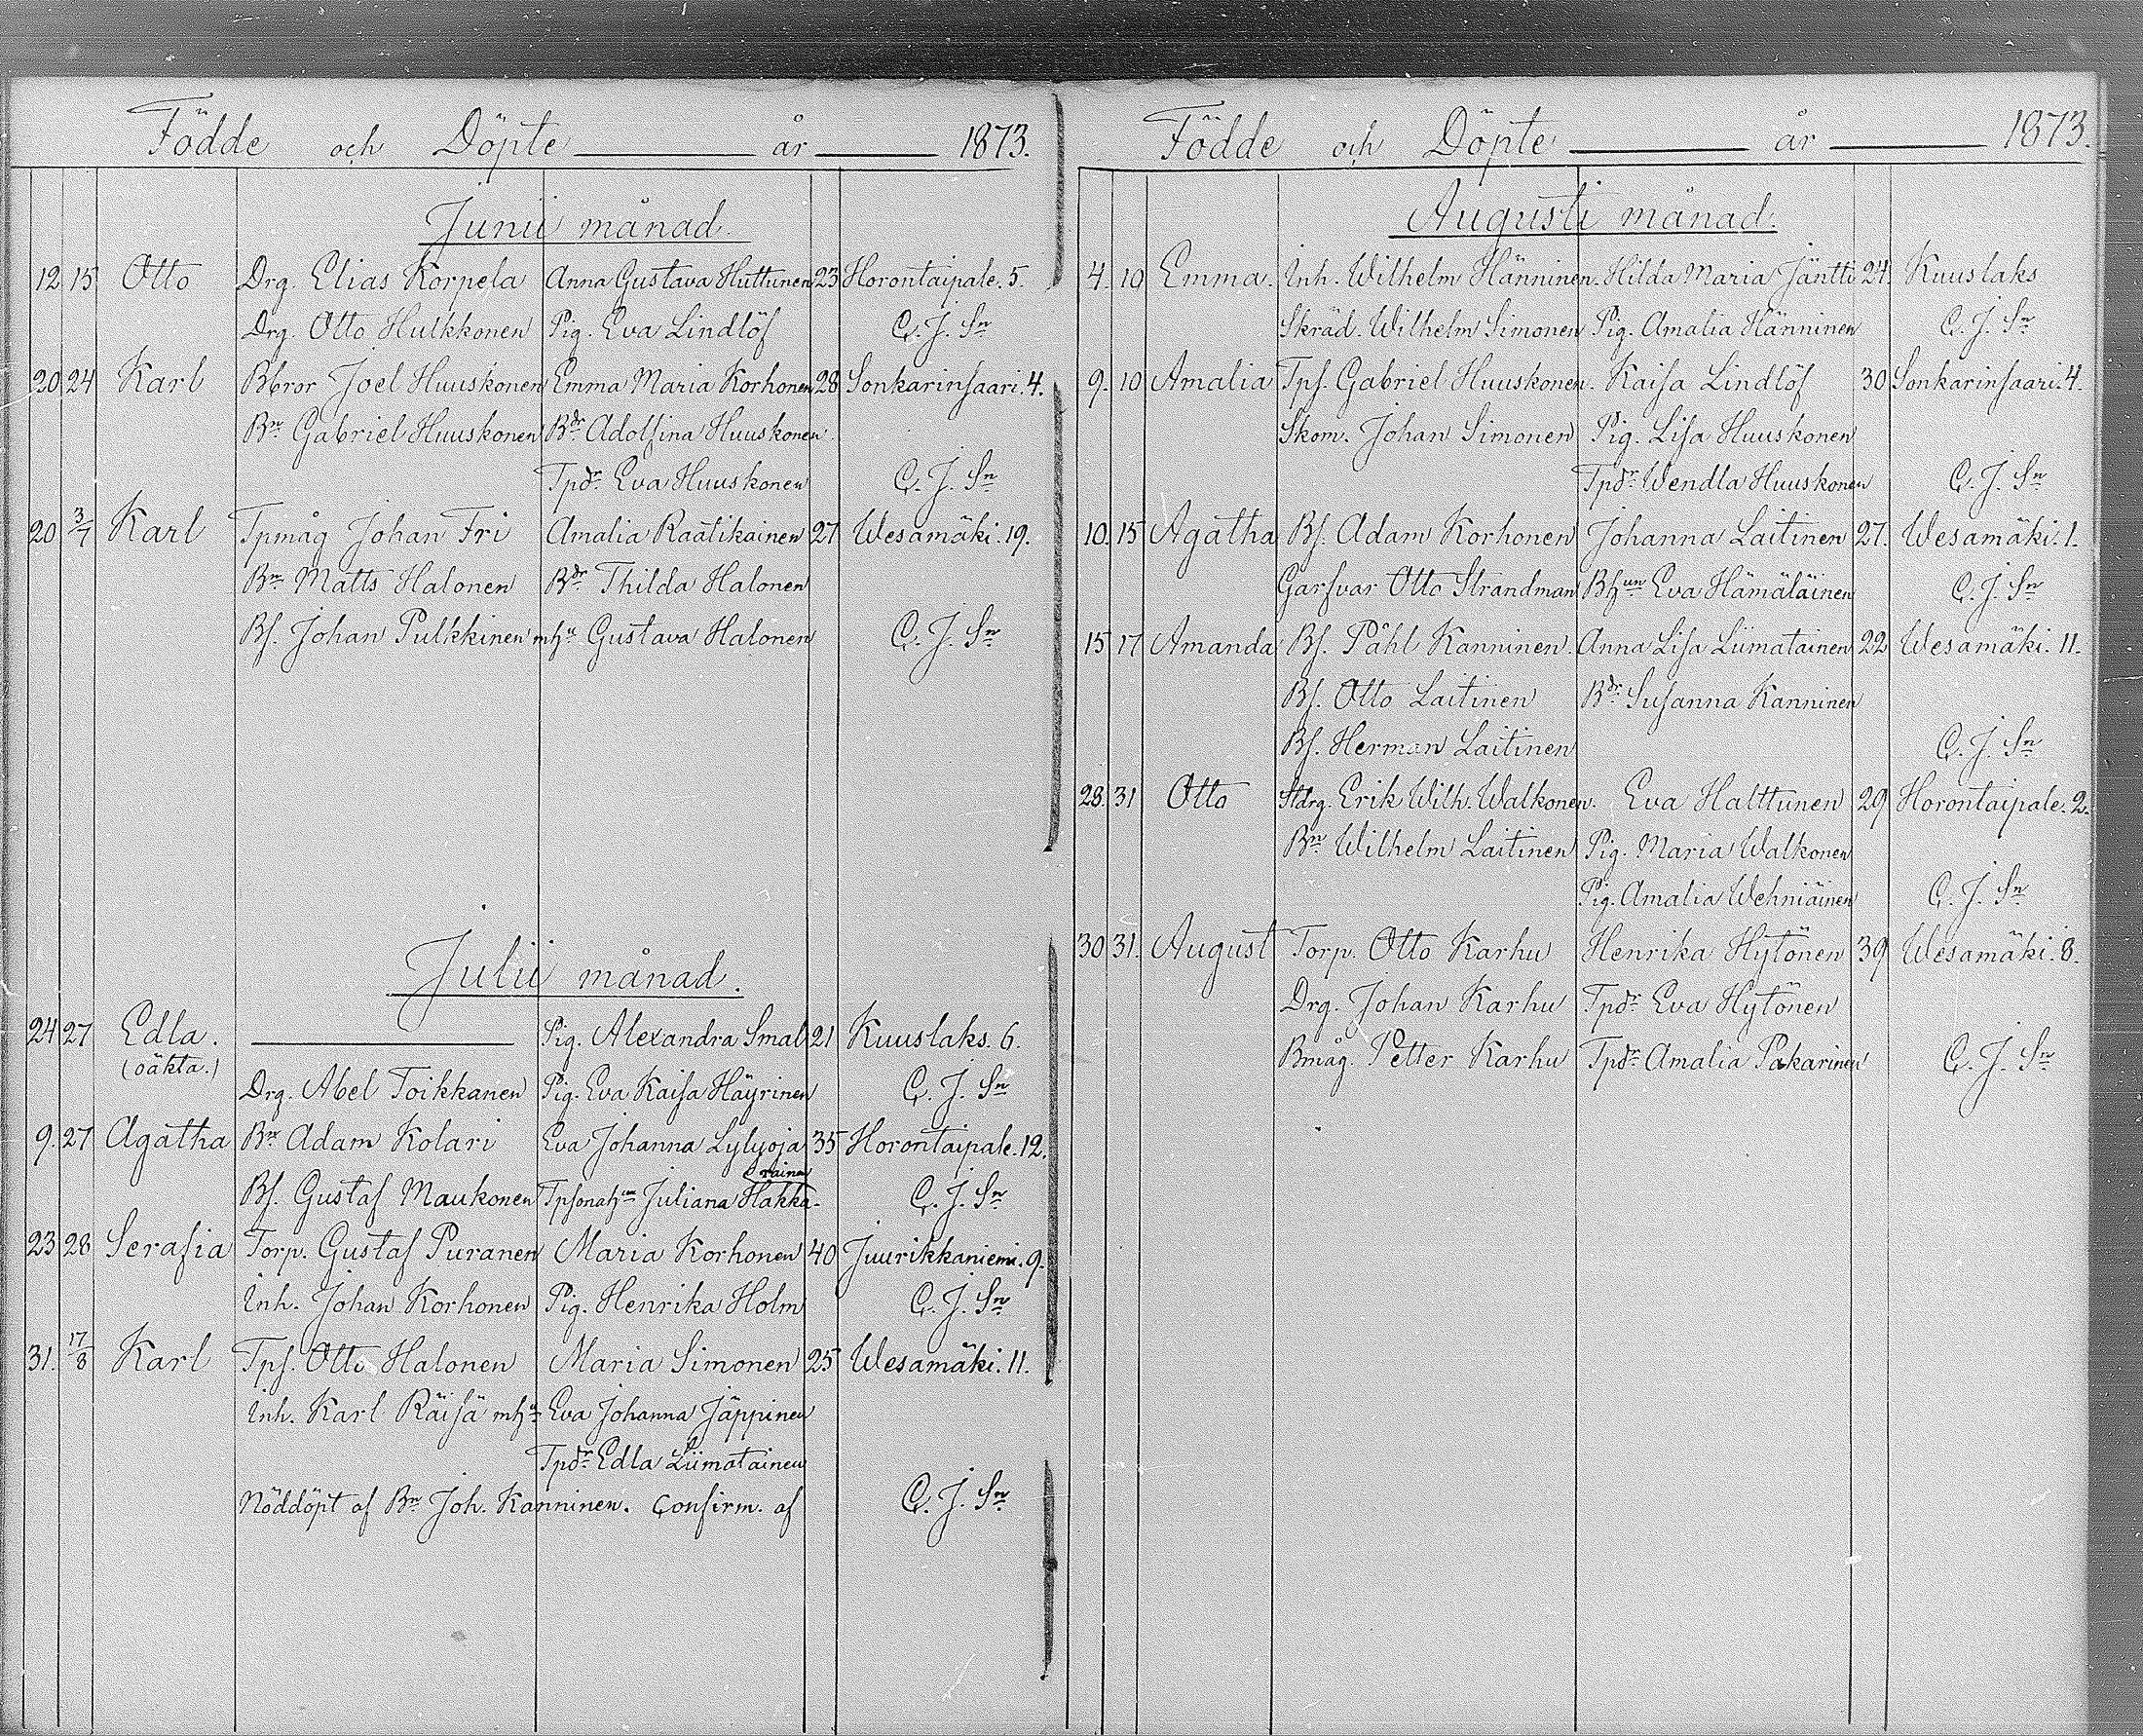 Födde och Döpte år 1873.
Junii månad.
12 15 Otto Drg. Elias Korpela Anna Gustava Huttunen 23 Horontaipale. 5.
Drg. Otto Hulkkonen Pig. Eva Lindlöf C. J. Sn
20 24 Karl Bbror Joel Huuskonen Emma Maria Korhonen 28 Sonkarinsaari. 4.
Bn Gabriel Huuskonen Bdr Adolfina Huuskonen
Tpdr Eva Huuskonen C. J. Sn
20 3/7 Karl Tpmåg Johan Fri Amalia Raatikainen 27 Wesamäki. 19.
Bn Matts Halonen Bdr Thilda Halonen
Bs. Johan Pulkkinen mhu Gustava Halonen C. J. Sn
Julii månad.
24 27 Edla. Pig. Alexandra Smal 21 Kuuslaks. 6.
(oäkta.)
Drg. Abel Toikkanen Pig. Eva Kaisa Häyrinen C. J. Sn
9. 27 Agatha Bn Adam Kolari Eva Johanna Lylyoja 35 Horontaipale. 12.
Bs. Gustaf Maukonen Juliana Hakka- C. J. Sn
rainen
23 28 Serafia Torp. Gustaf Puranen Maria Korhonen 40 Juurikkaniemi. 9.
Inh. Johan Korhonen Pig. Henrika Holm C. J. Sn
31. 17/8 Karl Tps. Otto Halonen Maria Simonen 25 Wesamäki. 11.
Inh. Karl Räisä mhu Eva Johanna Jäppinen
Tpdr Edla Liimatainen
Nöddöpt af Bn Joh. Kanninen. Confirm. af C. J. Sn
Födde och Döpte år 1873.
Augusti månad.
4. 10 Emma. Inh. Wilhelm Hänninen. Hilda Maria Jäntti 24. Kuuslaks
Skräd. Wilhelm Simonen Pig. Amalia Hänninen C. J. Sn
9. 10 Amalia Tps. Gabriel Huuskonen. Kaisa Lindlöf 30 Sonkarinsaari. 4.
Skom. Johan Simonen Pig. Lisa Huuskonen
Tpdr Wendla Huuskonen C. J. Sn
10. 15 Agatha Bs. Adam Korhonen Johanna Laitinen 27. Wesamäki. 1.
Garfvar Otto Strandman Bhun Eva Hämäläinen C. J. Sn
15 17 Amanda Bs. Påhl Kanninen. Anna Lisa Liimatainen 22 Wesamäki. 11.
Bs. Otto Laitinen Bdr Susanna Kanninen
Bs. Herman Laitinen C. J. Sn
28. 31 Otto Stdrg. Erik Wilh. Walkonen. Eva Halttunen 29 Horontaipale. 2.
Bn Wilhelm Laitinen Pig. Maria Walkonen
Pig. Amalia Wehniäinen C. J. Sn
30 31. August Torp. Otto Karhu Henrika Hytönen 39 Wesamäki. 8.
Drg. Johan Karhu Tpdr Eva Hytönen
Bmåg. Petter Karhu Tpdr Amalia Pakarinen C. J. Sn